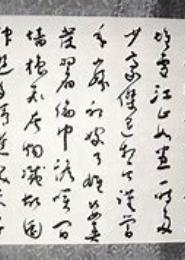 堆雪江山如畫一時多
少豪傑遙想公瑾當
年小喬初嫁了雄姿英
發羽扇綸巾談笑間
檣櫓灰飛煙滅故國
神遊多情應笑